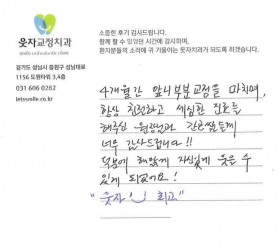 웃자교정치과
smile orthodontic clinic
경기도 성남시 중원구 성남대로
1156 도원타워 3,4층
031 606 0282
letssmile.co.kr
소중한 후기 감사드립니다.
함께 할 수 있었던 시간에 감사하며,
환자분들의 소리에 귀 기울이는 웃자치과가 되도록 하겠습니다.
4개월간 앞니부분교정을 마치며,
항상 친절하고 세심한 진료를
해주신 원장님과 간호쌤들께
너무 감사드립니다!!
덕분에 해맑게 자신있게 웃을 수
있게 되었어요!
"웃자 최고"